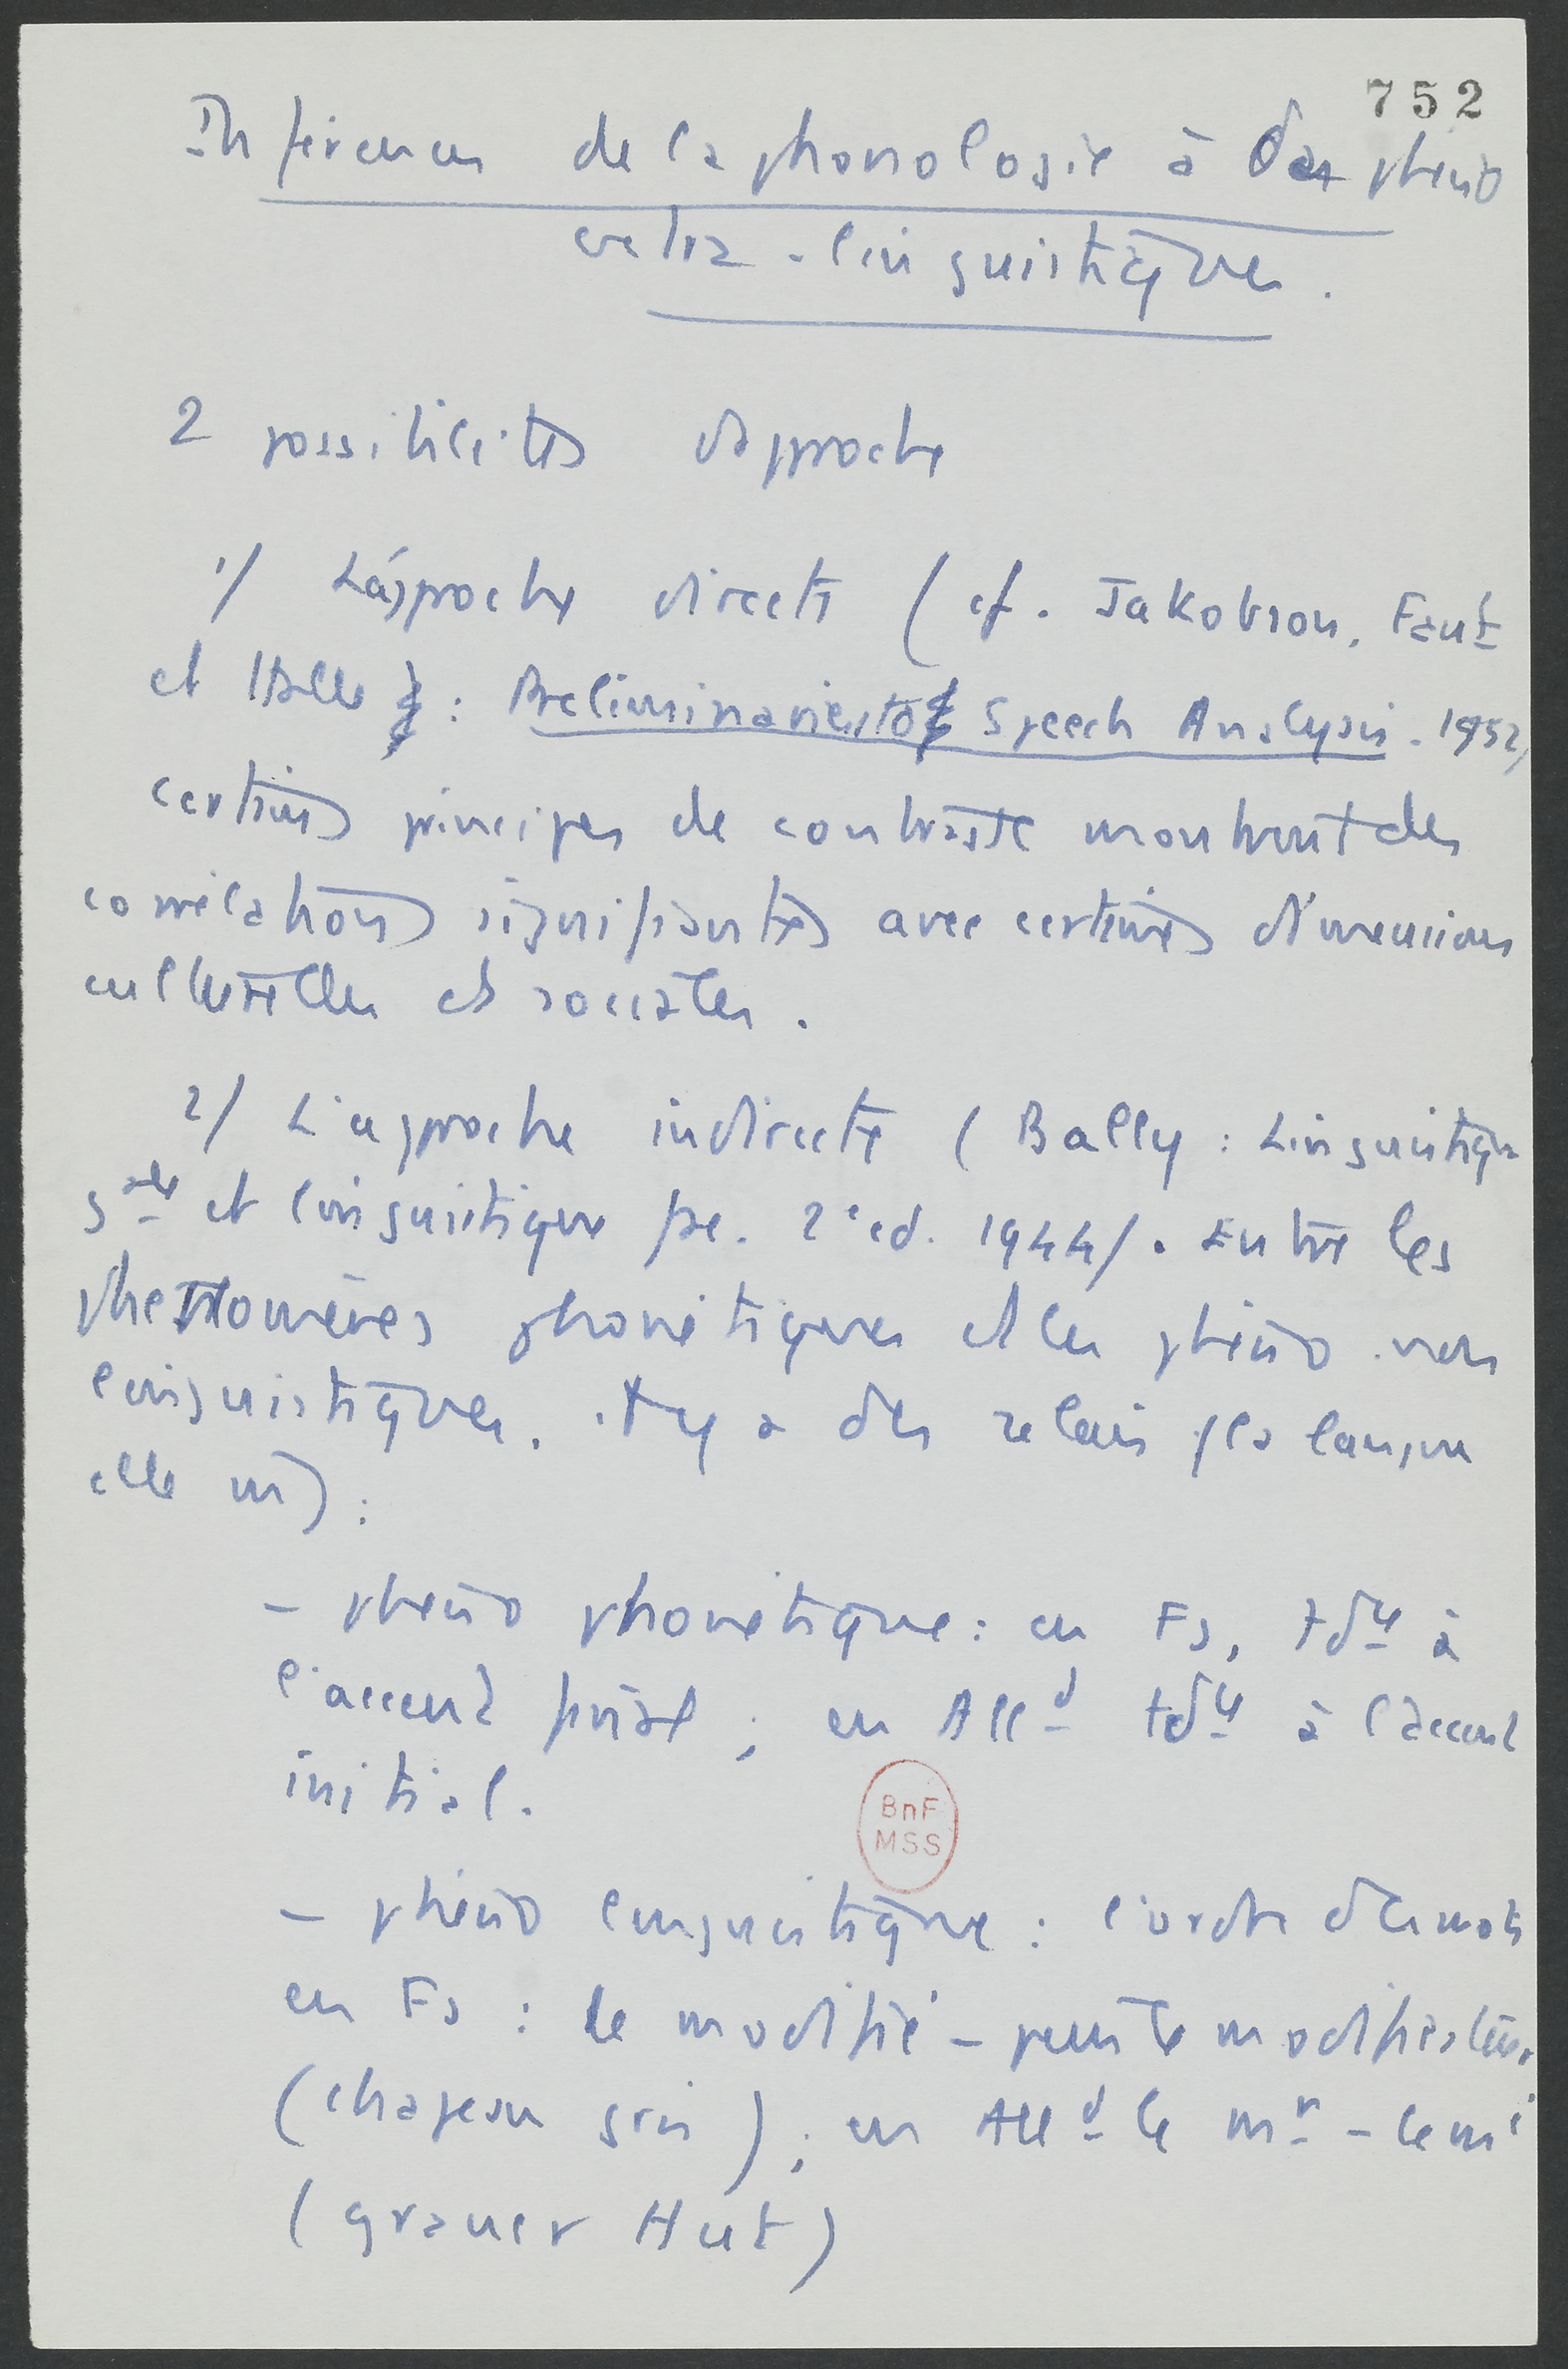 752
Inférences de la phonologie à des phéno
extra-linguistiques.
2 possibilités d'approche
1/ L'approche directe (cf. Jakobson, Fant
et Halle : Preliminaries to Speech Analysis. 1952)
certains principes de contraste montrent des
corrélations signifiantes avec certaines dimensions
culturelles et sociales.
2/ L'approche indirecte (Bally : Linguistique
gale et linguistique fse. 2e ed. 1944). Entre les
phenomènes phonétiques et les phéno non
linguistiques, il y a des relais (la langue
elle m) :
- phéno phonétique : en Fs, tdce à
l'accent final ; en Alld tdce à l'accent
initial.
BnF
MSS
- phéno linguistique : l'ordre des mots
en Fs : le modifié - puis le modificateur
(chapeau gris) ; en Alld le mr - le mé
(grauer Hut)